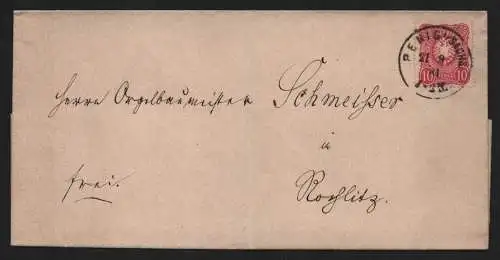 PENIG
10 10
Herrn Orgelbaumeister Schmeisser
in
Rochlitz.
frei.